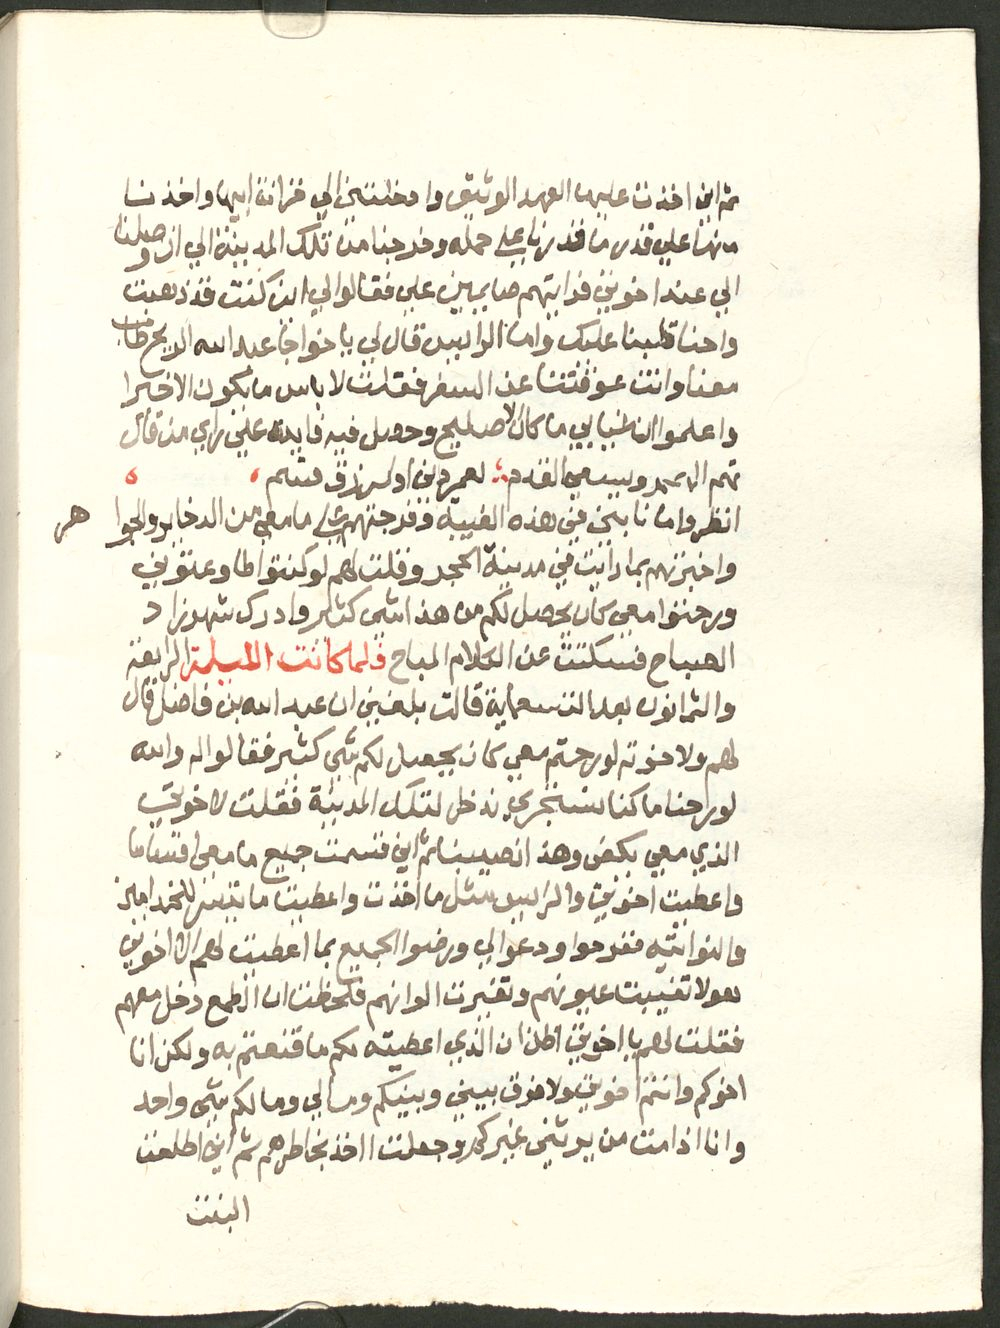 ثم اني اخذت عليها العهد الوثيق وادخلتني الي خزانة ابيها واخذنا
منها علي قدر ما قدرنا علي حمله وخرجنا من تلك المدينة الي ان وصلنا
الي عند اخوتي فرايتهم صايمين علي فقالوا لي اين كنت قد ذهبت
واحنا قلبنا عليك واما الرايس قال لي يا خواجا عبد الله الريح طاب
معنا وانت عوقتنا عن السفر فقلت لا باس ما يكون الا خيرا
واعلموا ان غيابي ما كان الا صليح وحصل فيه فايده علي راي من قال
لهم ولا خوته لو رحتم معي كان يحصل لكم شي كثير فقالوا له والله
انظروا ما نابني في هذه الغيبة وفرجتهم علي ما معي من الدخاير والجوا
هر
واخبرتهم بما رايت في مدينة الحجر وقلت لهم لو كنتوا طاوعتوني
ورحتوا معي كان يحصل لكم من هذا شي كثير وادرك شهرزاد
الصباح فسكتت عن الكلام المباح فلما كانت الليلة الرابعة
والثمانون بعد التسعماية قالت بلغني ان عبد الله بن فاضل قال
لهم ولاخوته لو رحتم معي كان يحصل لكم شي كثير فقالوا له والله
لو رحنا ما كنا نستجري ندخل لتلك المدينة فقلت لاخوتي
الذي معي يكفي وهذا نصيبنا ثم اني قسمت جميع ما معي اقساما
واعطيت اخوتي والرايس مثل ما اخذت واعطيت ما تيسر للخدامين
والنواتيه ففرحوا ودعوا لي ورضوا الجميع بما اعطيت لهم الا اخوتي
هولا تغيبت عيونهم وتغيرت الوانهم فلحظت ان الطمع دخل معهم
فقلت لهم يا اخوتي اظن ان الذي اعطيته لكم ما قنعتم به ولكن انا
اخوكم وانتم اخوتي ولا فرق بيني وبينكم ومالي ومالكم شي واحد
وانا اذا مت من يرثني غيركم وجعلت ااخذ بخاطرهم ثم اني اطلعت
البنت